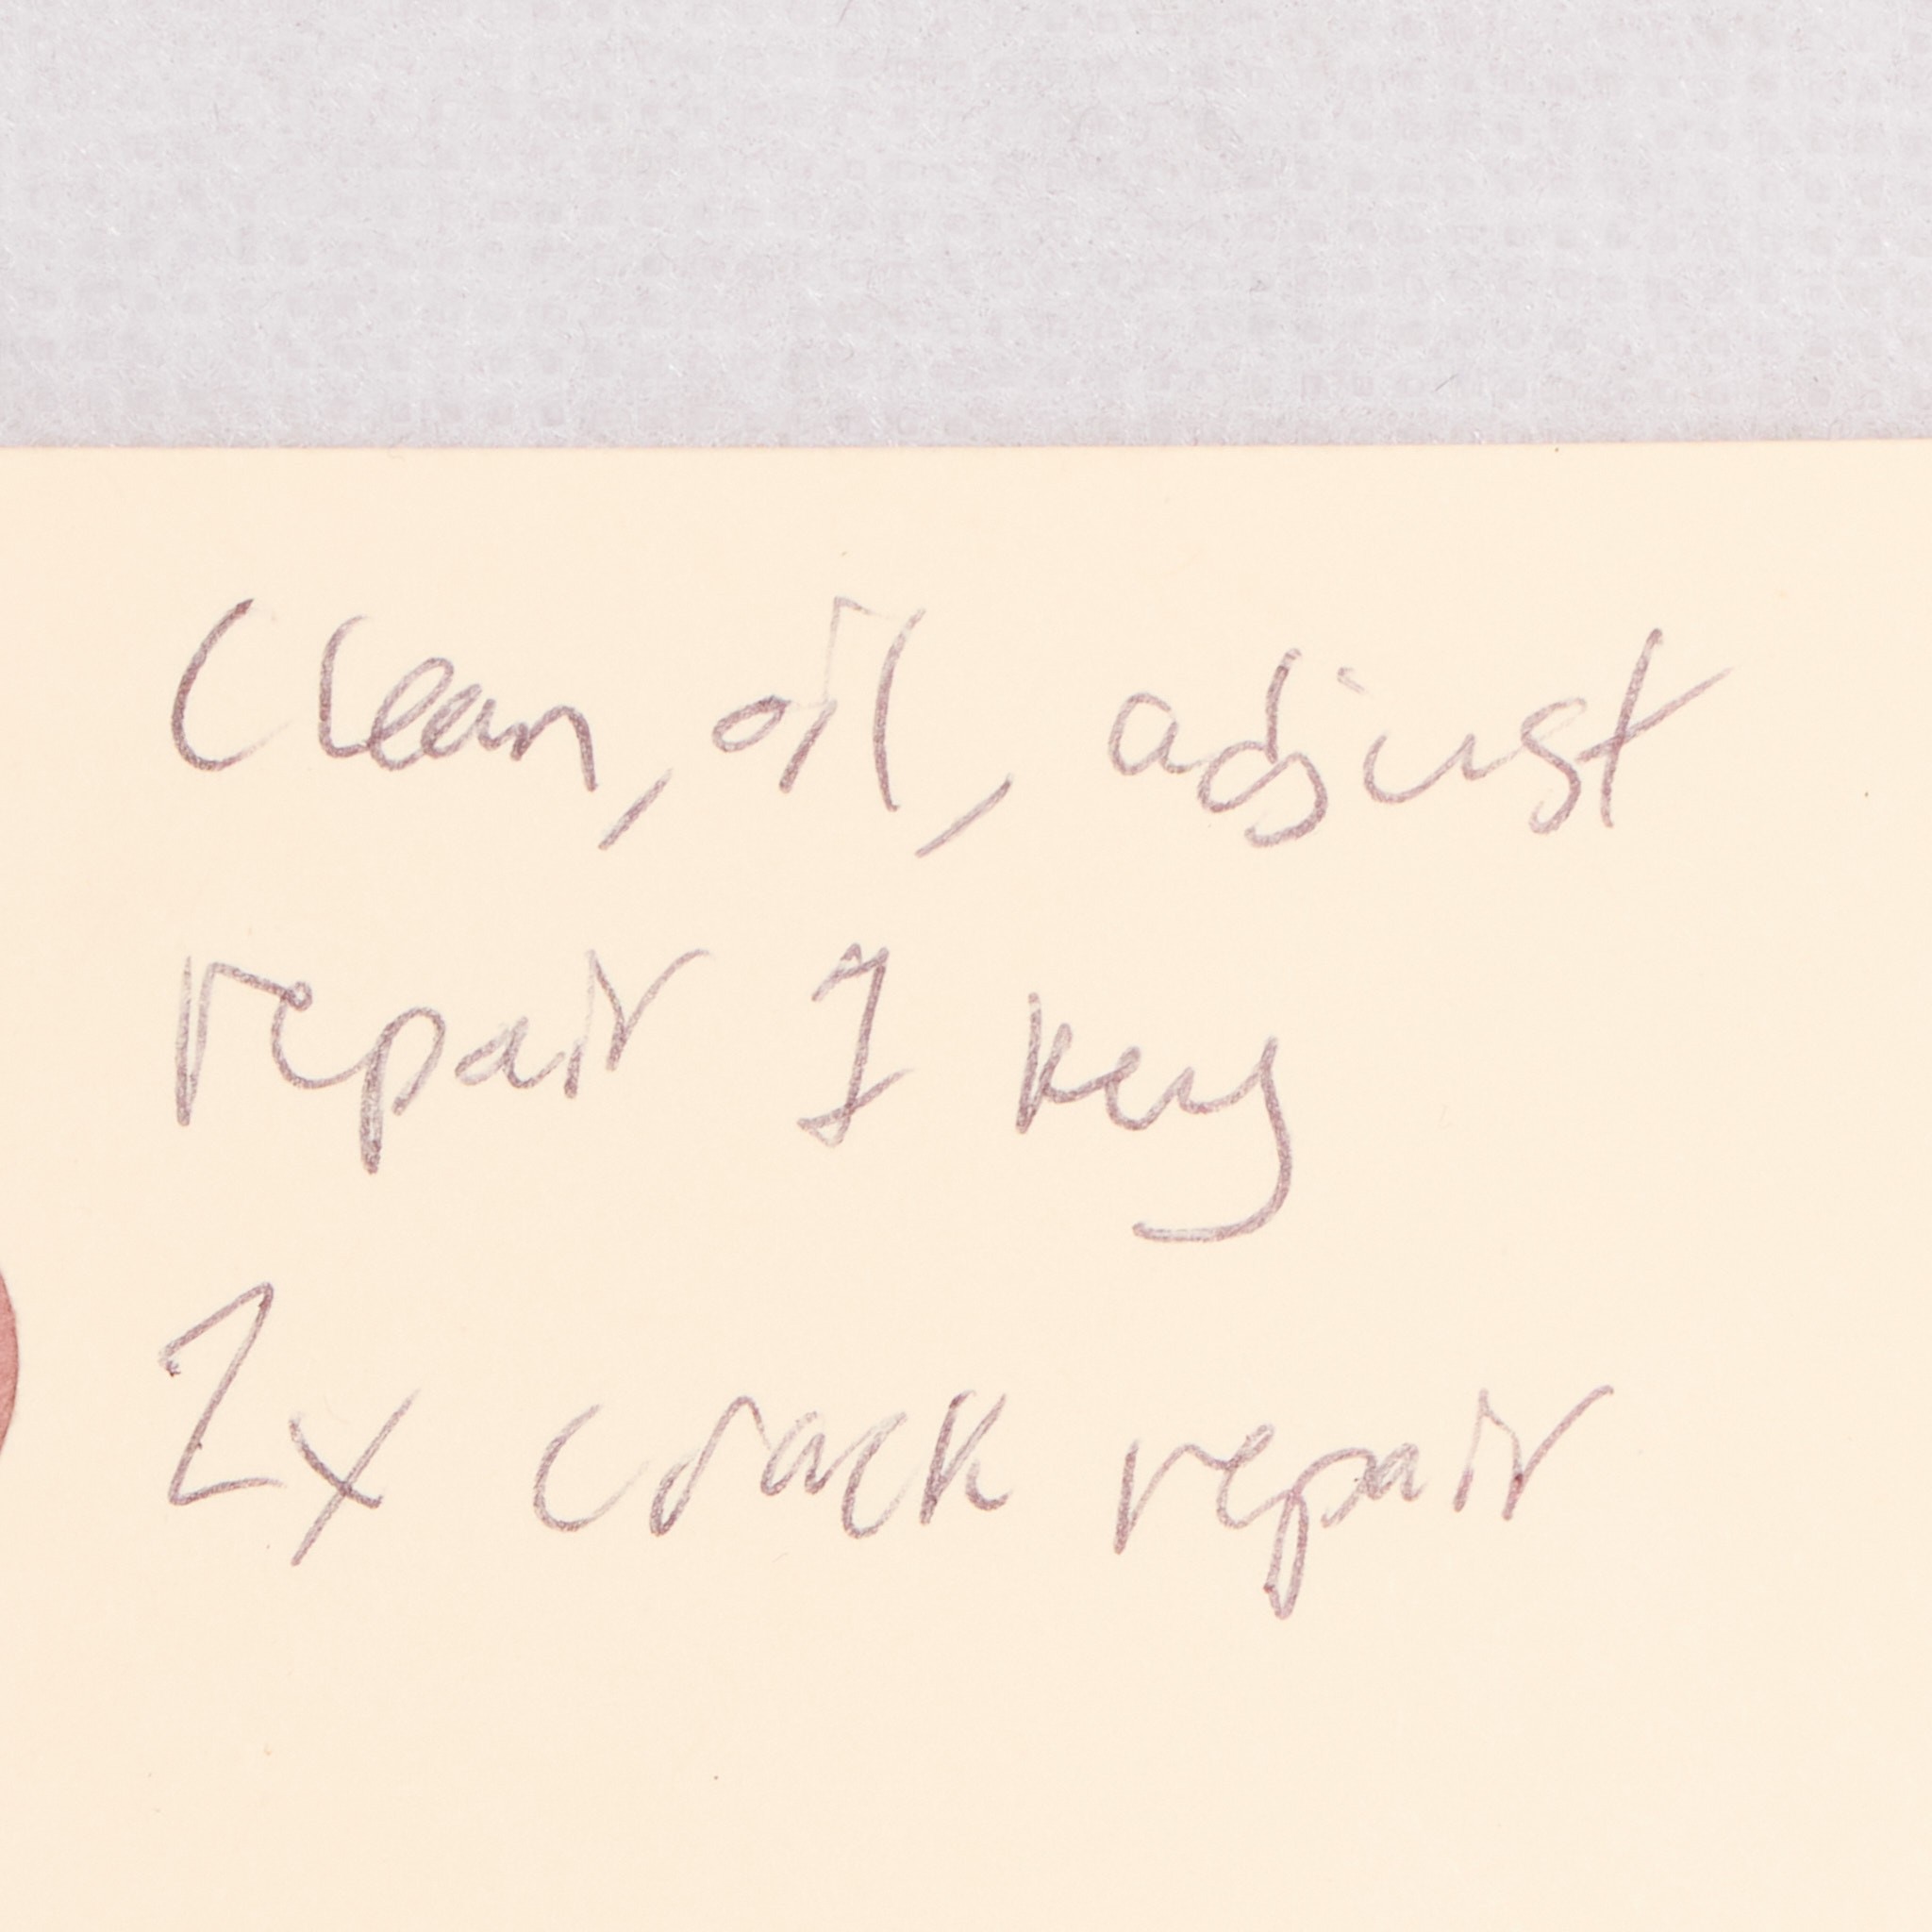 Clean, oil, adjust
repair 1 key
2x crack repair